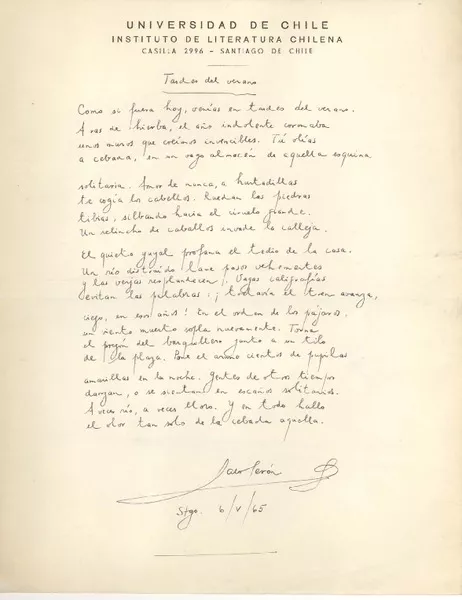 UNIVERSIDAD DE CHILE
INSTITUTO DE LITERATURA CHILENA
CASILLA 2996 - SANTIAGO DE CHILE
Tardes del verano
Como si fuera hoy, venías en tardes del verano.
A ras de hierba, el año indolente coronaba
unos muros que creímos invencibles. Tú olías
a cebada, en un vago almacén de aquella esquina
solitaria. Amor de nunca, a hurtadillas
te cogía los cabellos. Ruedan las piedras
tibias, silbando hacia el ciruelo grande.
Un relincho de caballos invade la calleja.
El quieto yuyal profana el tedio de la casa.
Un río distraído lava pasos vehementes
y las verjas resplandecen. Vagas caligrafías
evitan las palabras, ¡todavía el tren avanza,
ciego, en esos años! En el orden de los pájaros,
un viento muerto sopla nuevamente. Torna
el pregón del barquillero junto a un tilo
de la plaza. Pone el aromo cientos de pupilas
amarillas en la noche. Gentes de otros tiempos
danzan, o se sientan en escaños solitarios.
A veces río, a veces lloro. Y en todo hallo
el olor tan solo de la cebada aquella.
Stgo. 6/V/65